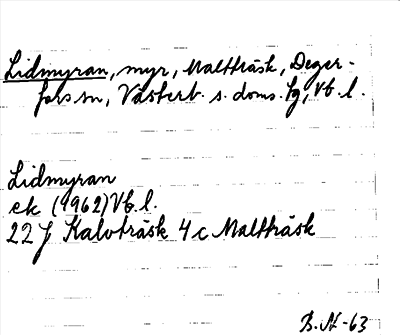 Lidmyran, myr, Maltträsk, Deger-
fors sn, Västerb. s. doms. tg, Vb. l.
Lidmyran
ek (1962) Vb. l.
22 J Kalvträsk 4 c Maltträsk
B. N-63